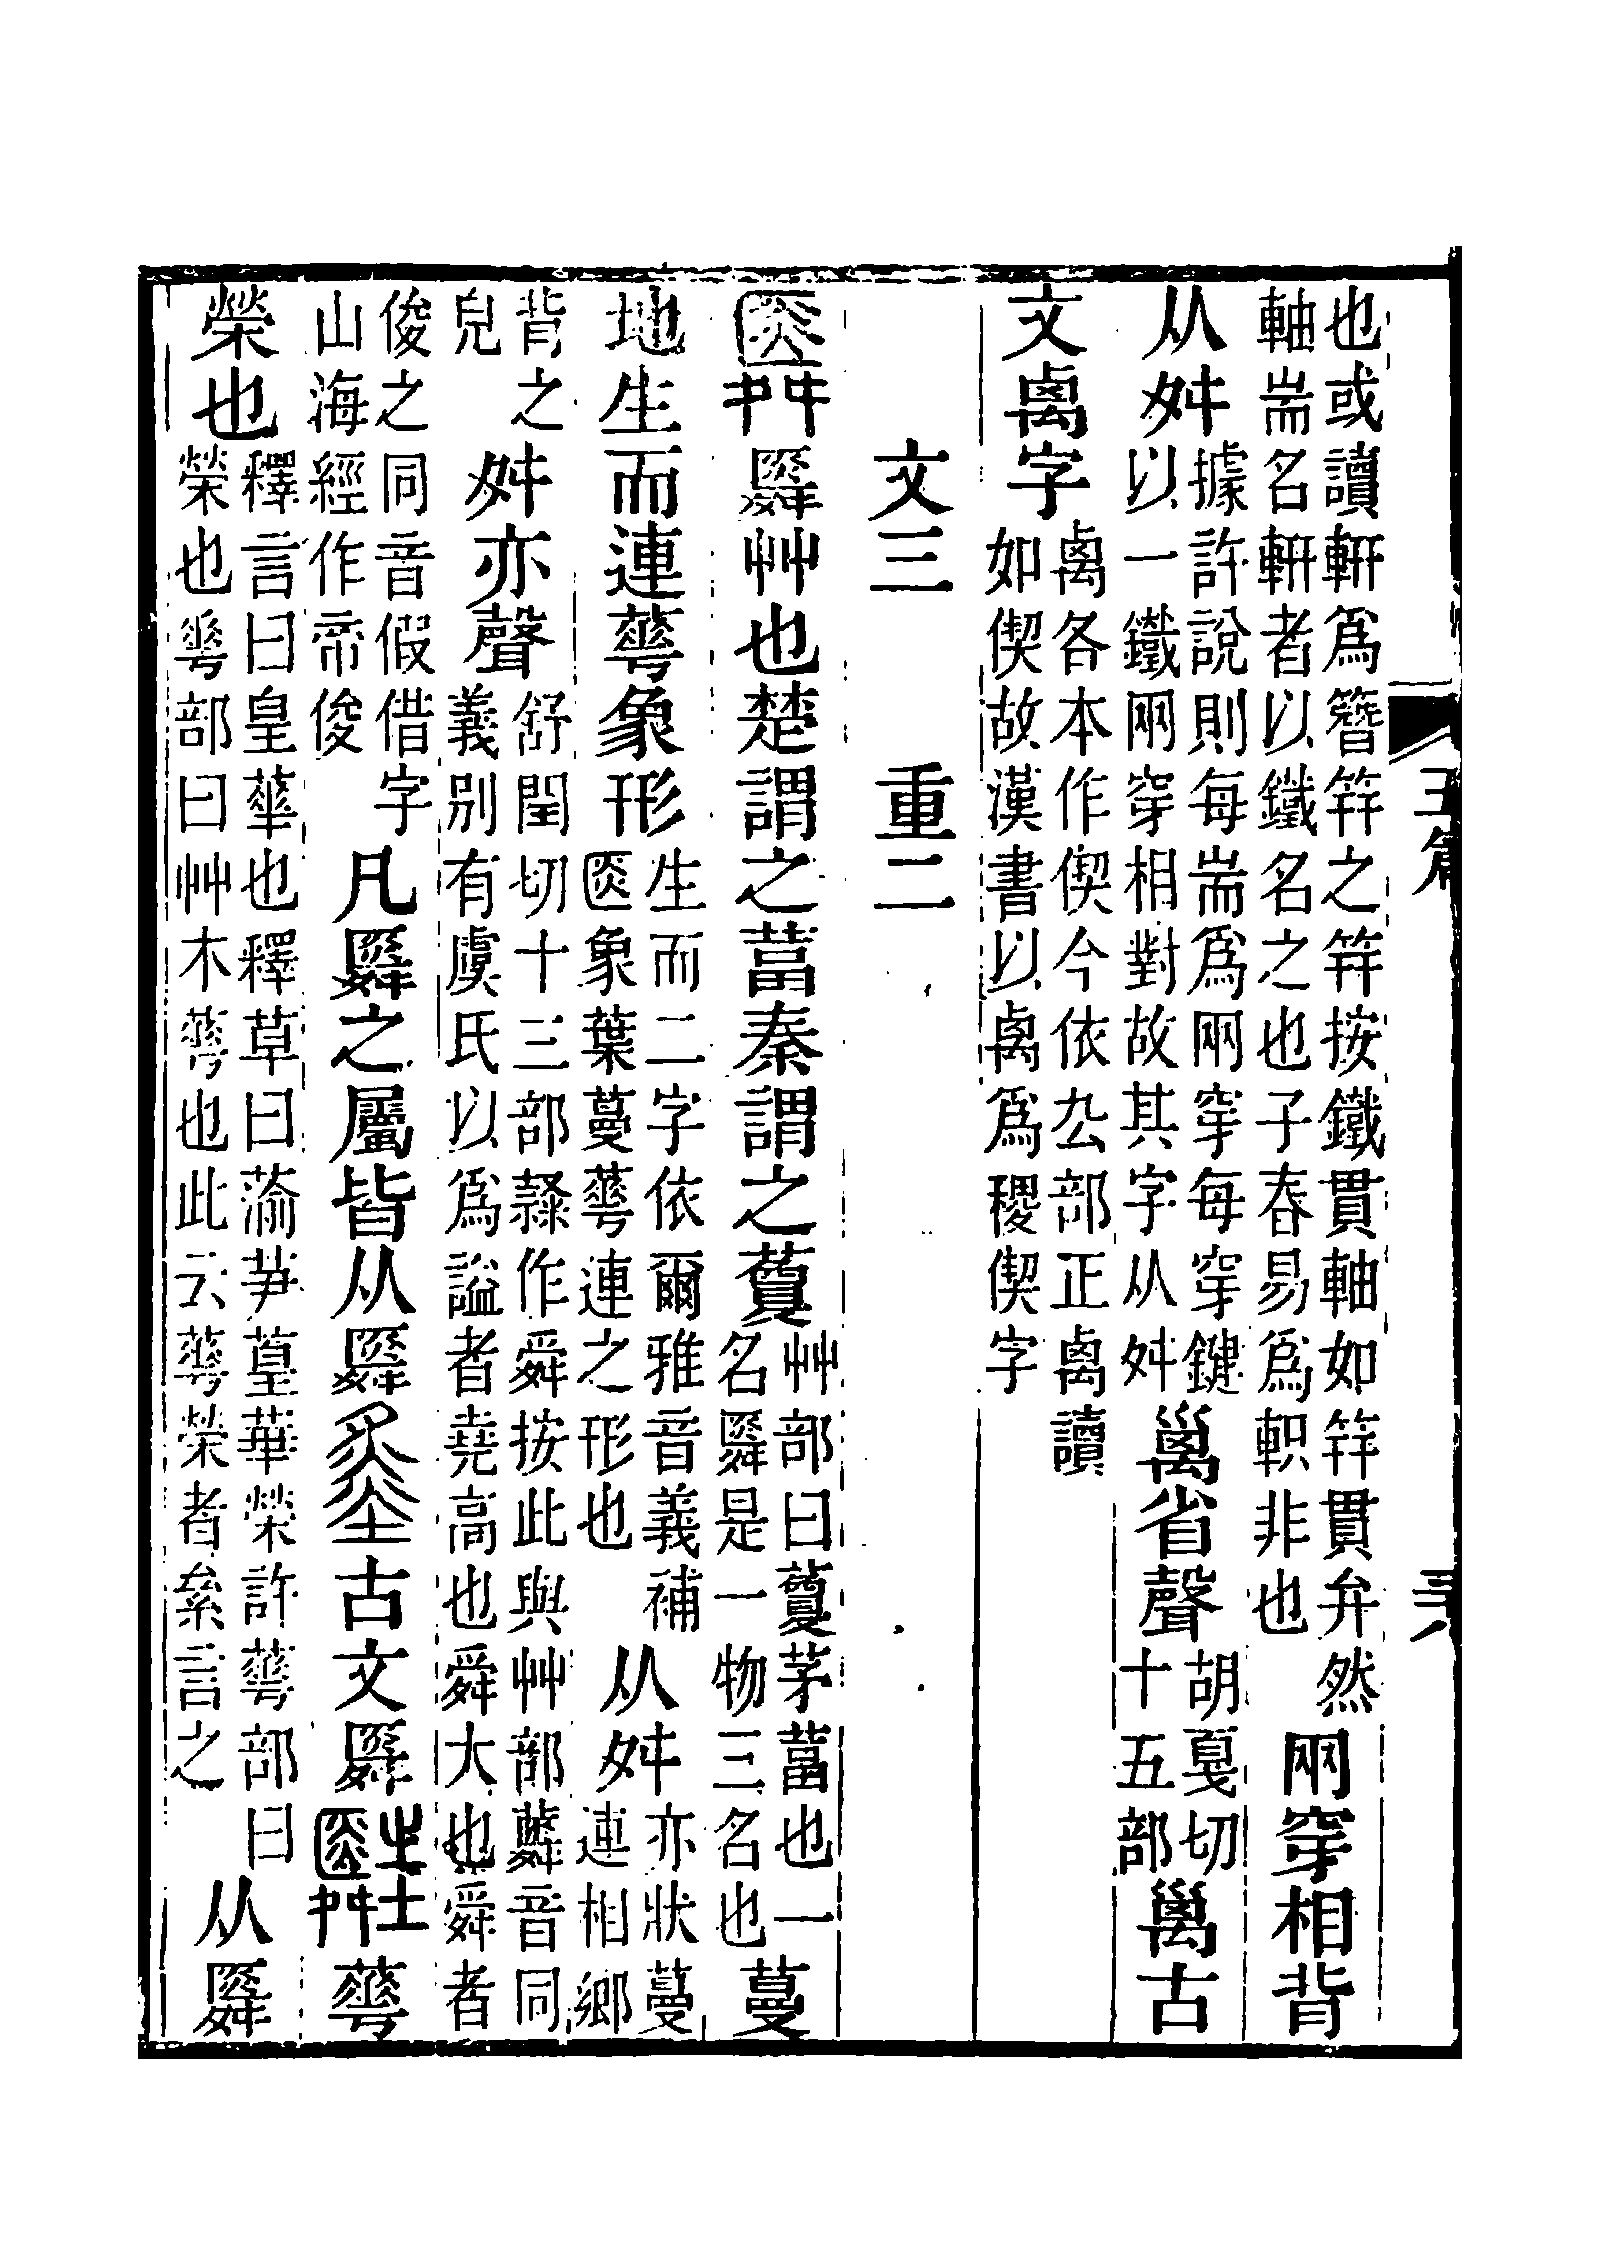 也或讀䡘爲簪笄之笄按鐵貫軸如笄貫弁然
軸耑名䡘者以鐵名之也子春易爲軹非也
兩穿相背
从舛
據許說則每耑爲兩穿每穿鍵
以一鐵兩穿相對故其字从舛
𥜿省聲
胡戛切
十五部
𥜿古
文禼字
禼各本作偰今依厹部正禼讀
如偰故漢書以禼爲稷偰字
文三　重二
䑞艸也楚謂之葍秦謂之藑
艸部曰藑茅葍也一
名䑞是一物三名也
蔓
地生而連華象形
生而二字依爾雅音義補
匧象葉蔓華連之形也
从舛
亦狀蔓
連相鄉
背之
皃
舛亦聲
舒閏切十三部隷作舜按此與艸部蕣音同
義別有虞氏以爲謚者堯高也舜大也舜者
俊之同音假借字
山海經作帝俊
凡䑞之屬皆从䑞
古文䑞
華
榮也
釋言曰皇華也釋草曰蕍芛葟華榮許華部曰
榮也𠌶部曰艸木華也此云華榮者絫言之
从䑞
五篇